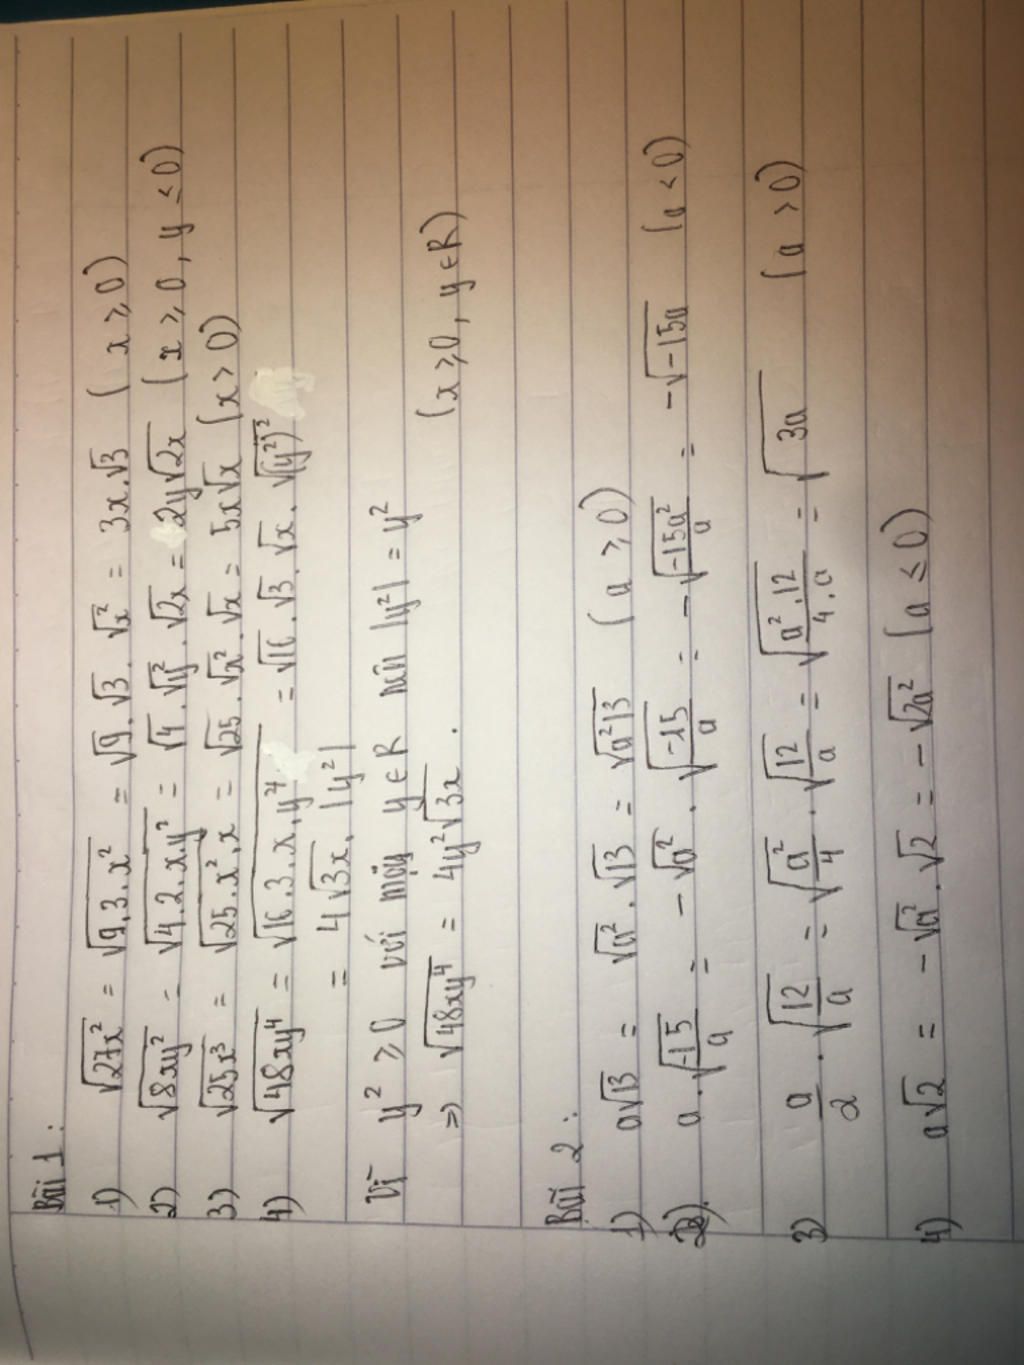 Bài 1 :
1) √27x² = √9.3.x² = √9 . √3 . √x² = 3x.√3 ( x ≥ 0 )
2) √8xy² = √4.2.x.y² = √4 . √y² . √2x = 2y√2x ( x ≥ 0 , y ≤ 0 )
3) √25x³ = √25.x².x = √25 . √x² . √x = 5x√x ( x > 0 )
4) √48xy⁴ = √16.3.x.y⁴ = √16 . √3 . √x . √(y²)²
= 4√3x . |y²|
Vì y² ≥ 0 với mọi y ∈ R nên |y²| = y²
=> √48xy⁴ = 4y²√3x . ( x ≥ 0 , y ∈ R )
Bài 2 :
1) a√13 = √a² . √13 = √a²13 ( a ≥ 0 )
2) a . √-15/a = - √a² . √-15/a = - √-15a²/a = - √-15a ( a < 0 )
3) a/2 . √12/a = √a²/4 . √12/a = √a².12/4.a = √3a ( a > 0 )
4) a√2 = - √a² . √2 = - √2a² ( a ≤ 0 )